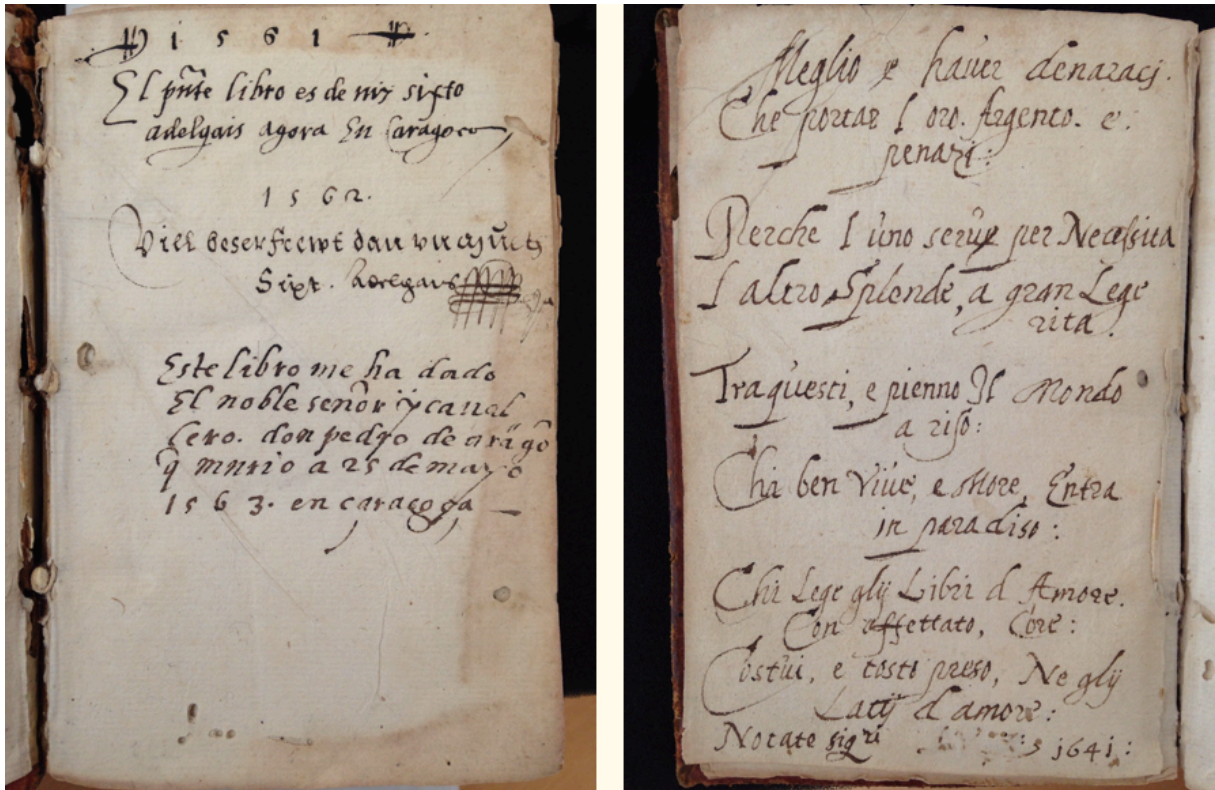 1561
El pñte libro es de my sixto
adelgais agora En Caragoca
1562.
Viel beser
Sixt. Adelgais
Este libro me ha dado
El noble señor y caual
lero. don pedro de arago
q murio a 25 de mayo
1563. en caragoça
Meglio e hauer denaracj.
Che portar l oro. Argento. e.
penarj:
Perche l uno serue per Necessita
l altro Splende, a gran Lege
rita.
Tra questi, e pienno Il Mondo
a riso:
Chi ben Viue, e More, Entra
in paradiso:
Chi Lege glij Libri d Amore.
Con affettato, Core:
Costui, e tosto preso, Ne glij
Latij d'amore:
Notate sigri 1641: